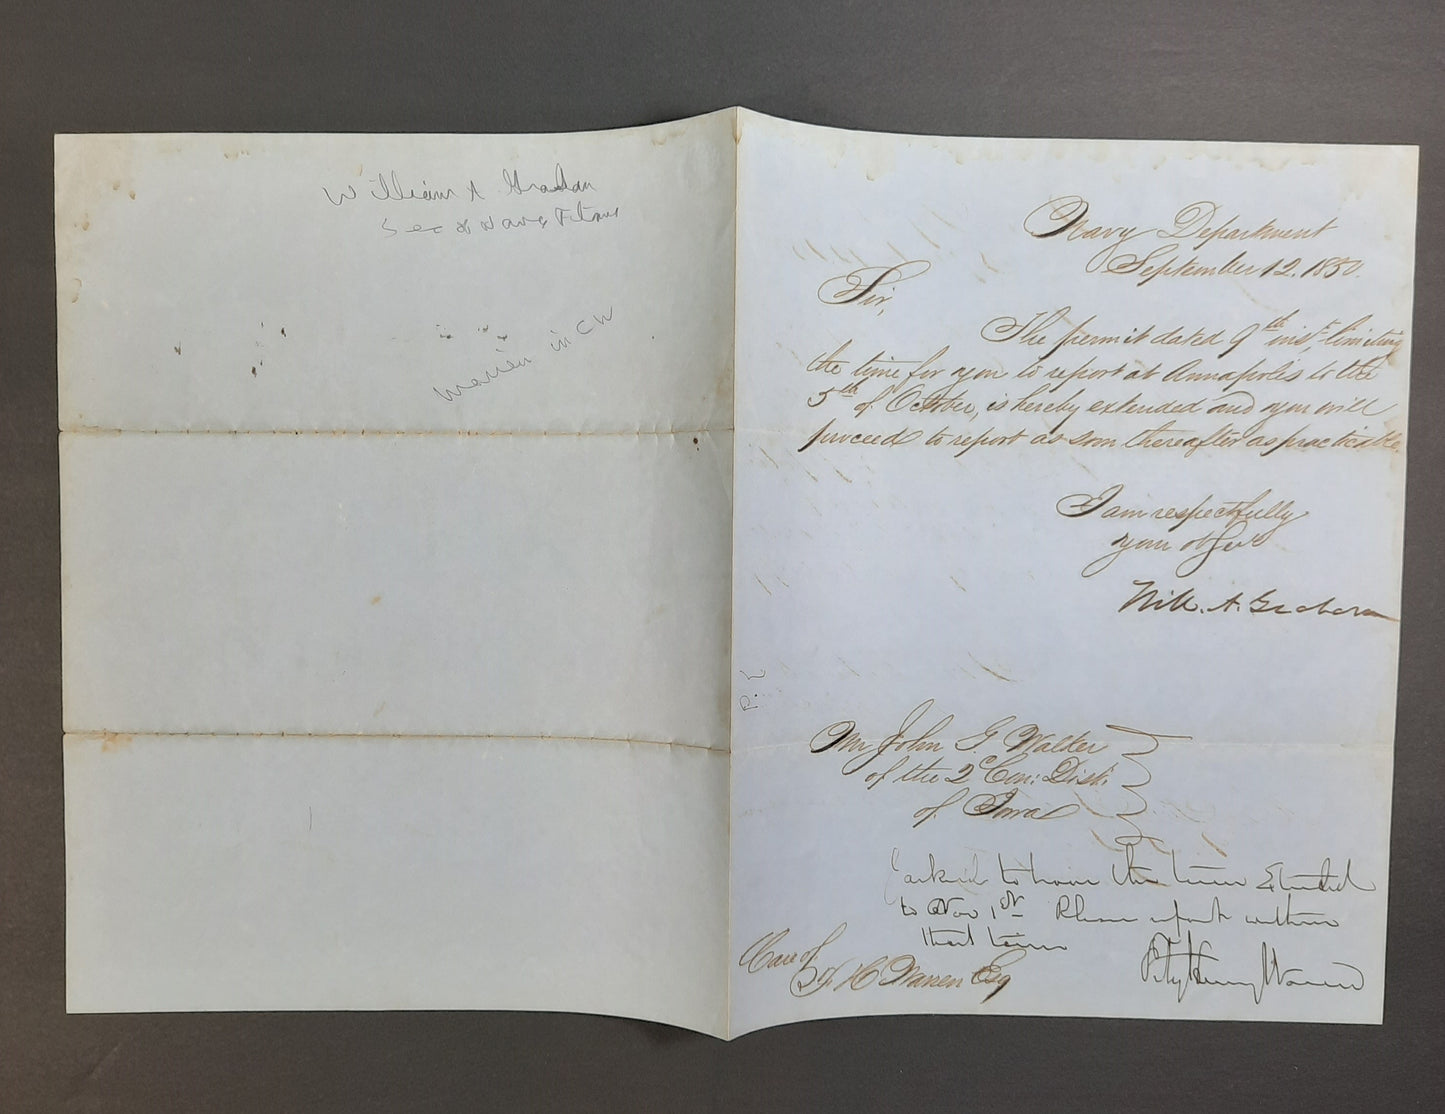 William A Graham
Sec of Navy Fillmore
Warren in CW
Navy Department
September 12, 1850.
Sir,
The permit dated 9th inst, limiting
the time for you to report at Annapolis to the
5th of October, is hereby extended and you will
proceed to report as soon thereafter as practicable.
I am respectfully
your ob Serv
Will. A. Graham
Mr John G Walker
of the 2d Con: Dist:
of Iowa
I asked to have the time Extended
to Nov 1st Please report within
that time
Fitz Henry Warren
Care of
F H Warren Esq